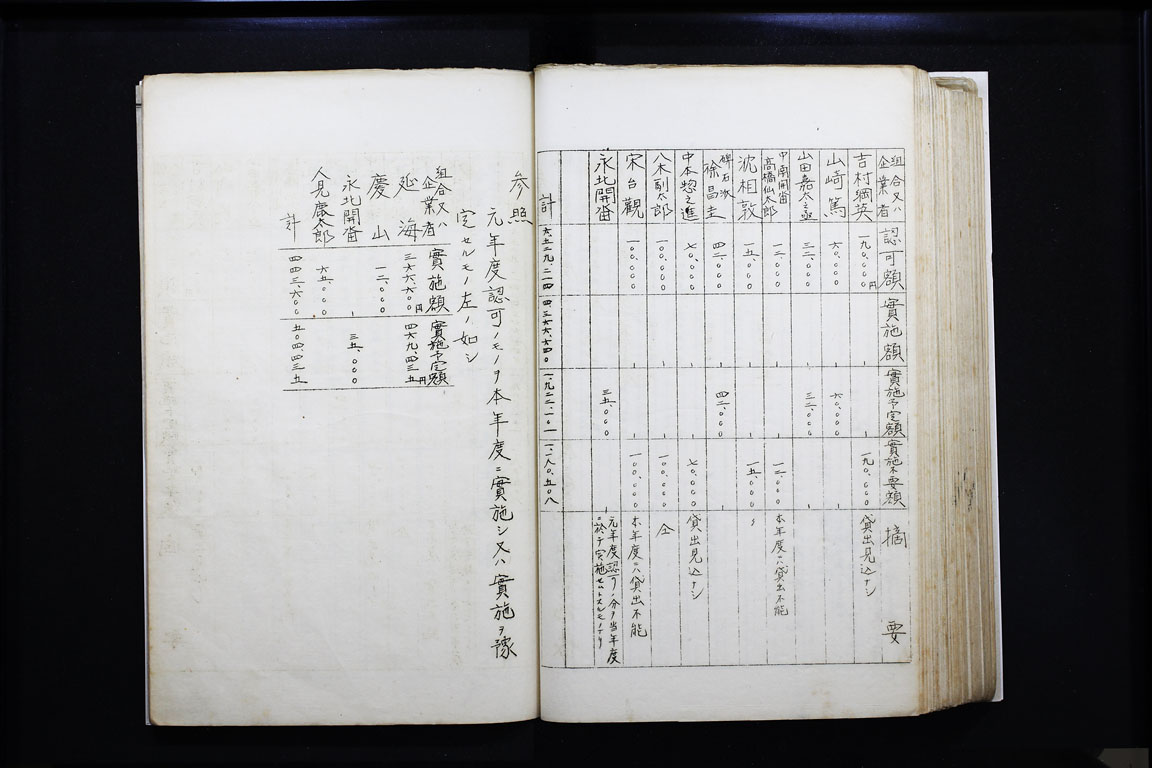 組合又ハ企業者 認可額 實施額 實施予定額 實施不要額 摘要
吉村綱英 一九〇、〇〇〇円 、 一九〇、〇〇〇 貸出見込ナシ
山崎篤 六〇、〇〇〇 、 六〇、〇〇〇
山田嘉太之亟 三二、〇〇〇 、 三二、〇〇〇 、
中南開畓 高橋仙太郎 一二、〇〇〇 、 、 一二、〇〇〇 本年度ニハ貸出不能
沈相敦 一五、〇〇〇 、 、 一五、〇〇〇 〃
碑石派 徐昌圭 四二、〇〇〇 、 四二、〇〇〇 、
中本惣之進 七〇、〇〇〇 、 、 七〇、〇〇〇 貸出見込ナシ
八木副太郎 一〇〇、〇〇〇 、 、 一〇〇、〇〇〇 仝
宋台觀 一〇〇、〇〇〇 、 、 一〇〇、〇〇〇 本年度ニハ貸出不能
永北開畓 三五、〇〇〇 、 元年度認可ノ分ヲ当年度ニ於テ実施セムトスルモノナリ
計
参照
元年度認可ノモノヲ本年度ニ實施シ又ハ實施ヲ豫
定セルモノ左ノ如シ
組合又ハ企業者 實施額 實施予定額
延海 三六六、六〇〇円 四六九、四三五円
慶山 一二、〇〇〇 、
永北開畓 、 三五、〇〇〇
人見慶太郎 六五、〇〇〇
計 四四三、六〇〇 五〇四、四三五